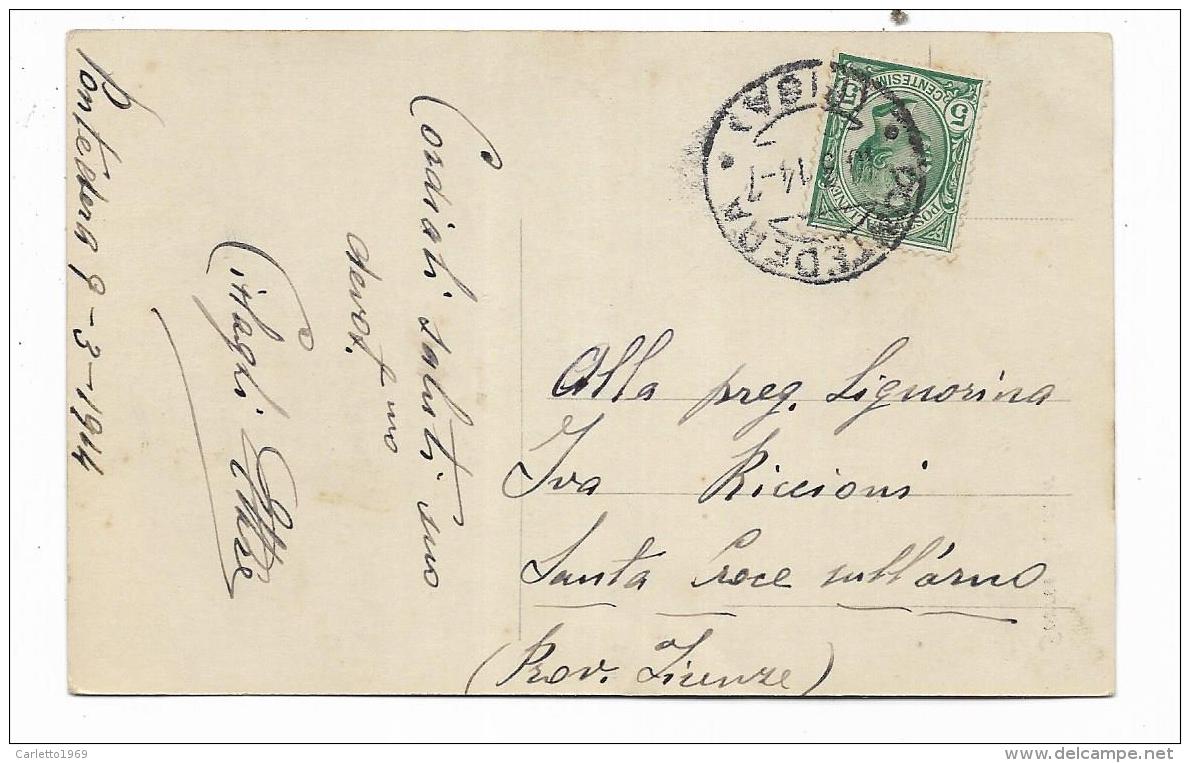 Pontedera 9-3-1914
Cordiali saluti suo
devot.mo
Ettore
Alla preg. Signorina
Iva Riccioni
Santa Croce sull'Arno
(Prov. Firenze)
PONTEDERA (PISA)
14-7
POSTE ITALIANE
CENTESIMI
5 5
Carletto1969
delcampe.net